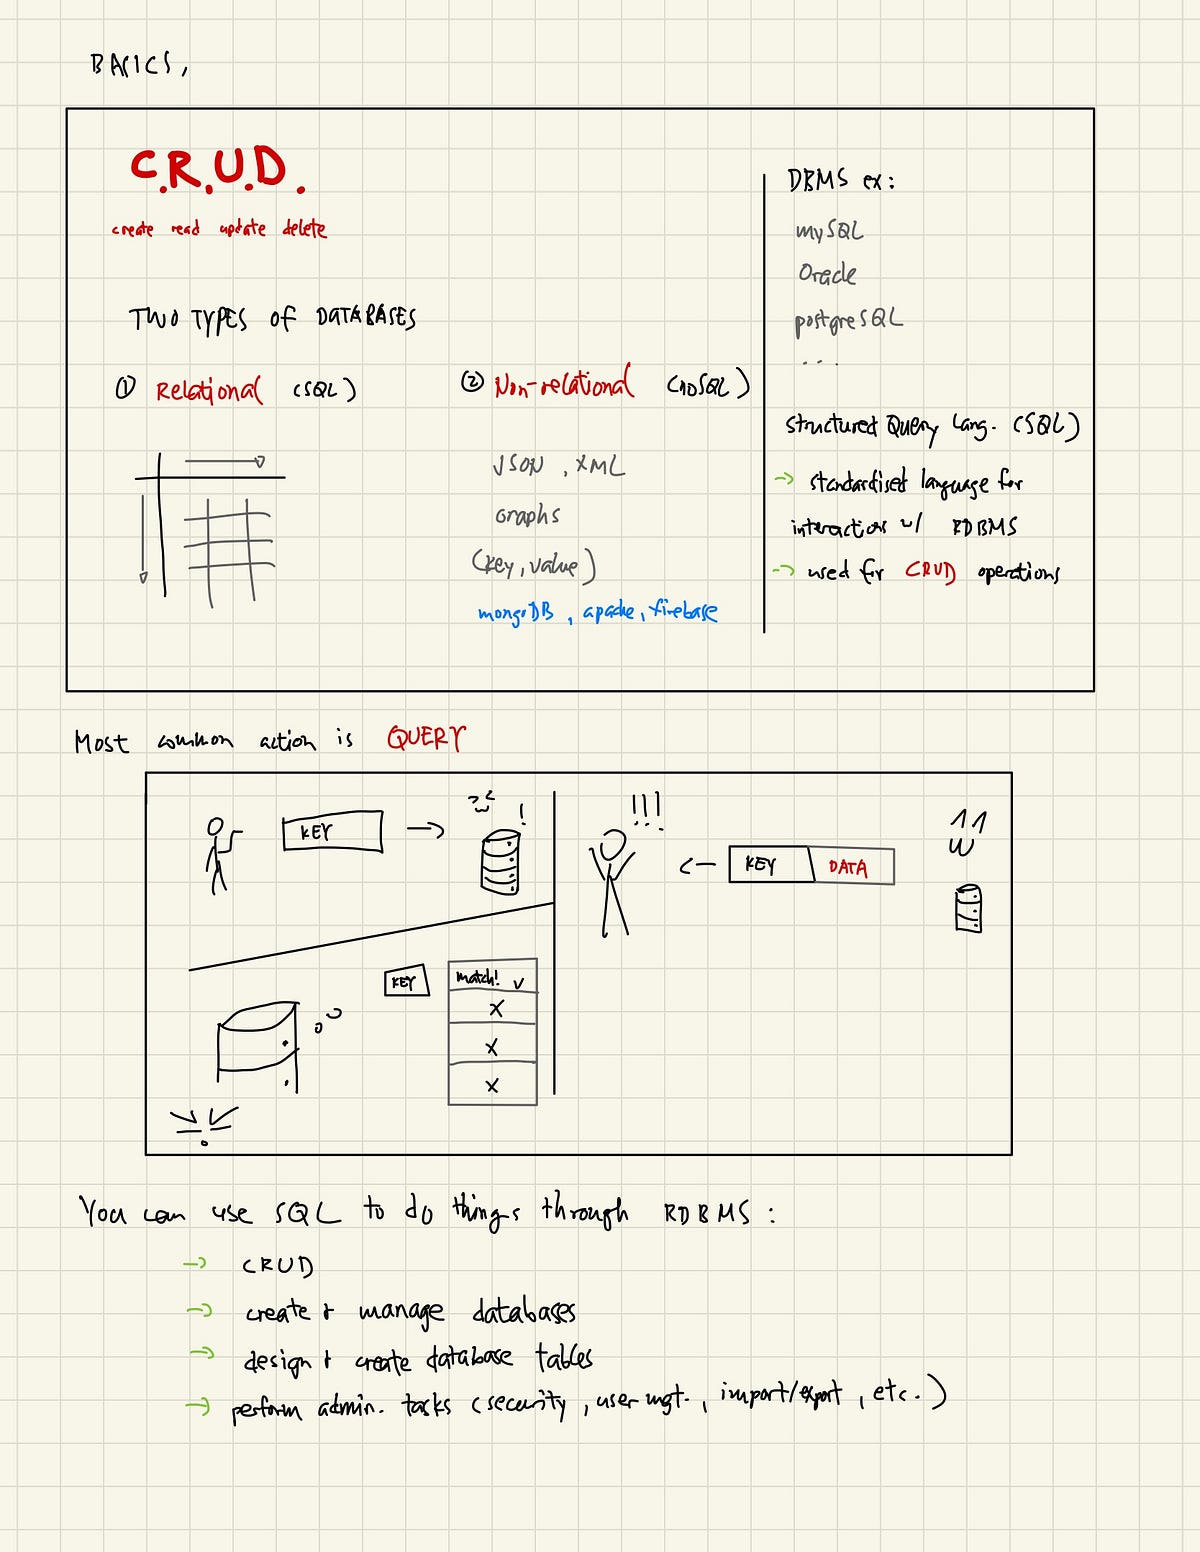 BASICS,
C.R.U.D.
create read update delete
TWO TYPES OF DATABASES
① Relational (SQL)
② Non-relational (noSQL)
JSON, XML
Graphs
(key, value)
mongoDB, apache, firebase
DBMS ex:
mySQL
Oracle
postgreSQL
...
structured Query Lang. (SQL)
→ standardised language for
interaction w/ RDBMS
→ used for CRUD operations
Most common action is QUERY
KEY →
!
KEY
match! ✓
X
X
X
!!!
← KEY DATA
You can use SQL to do things through RDBMS:
→ CRUD
→ create + manage databases
→ design + create database tables
→ perform admin. tasks (security, user mgt., import/export, etc.)